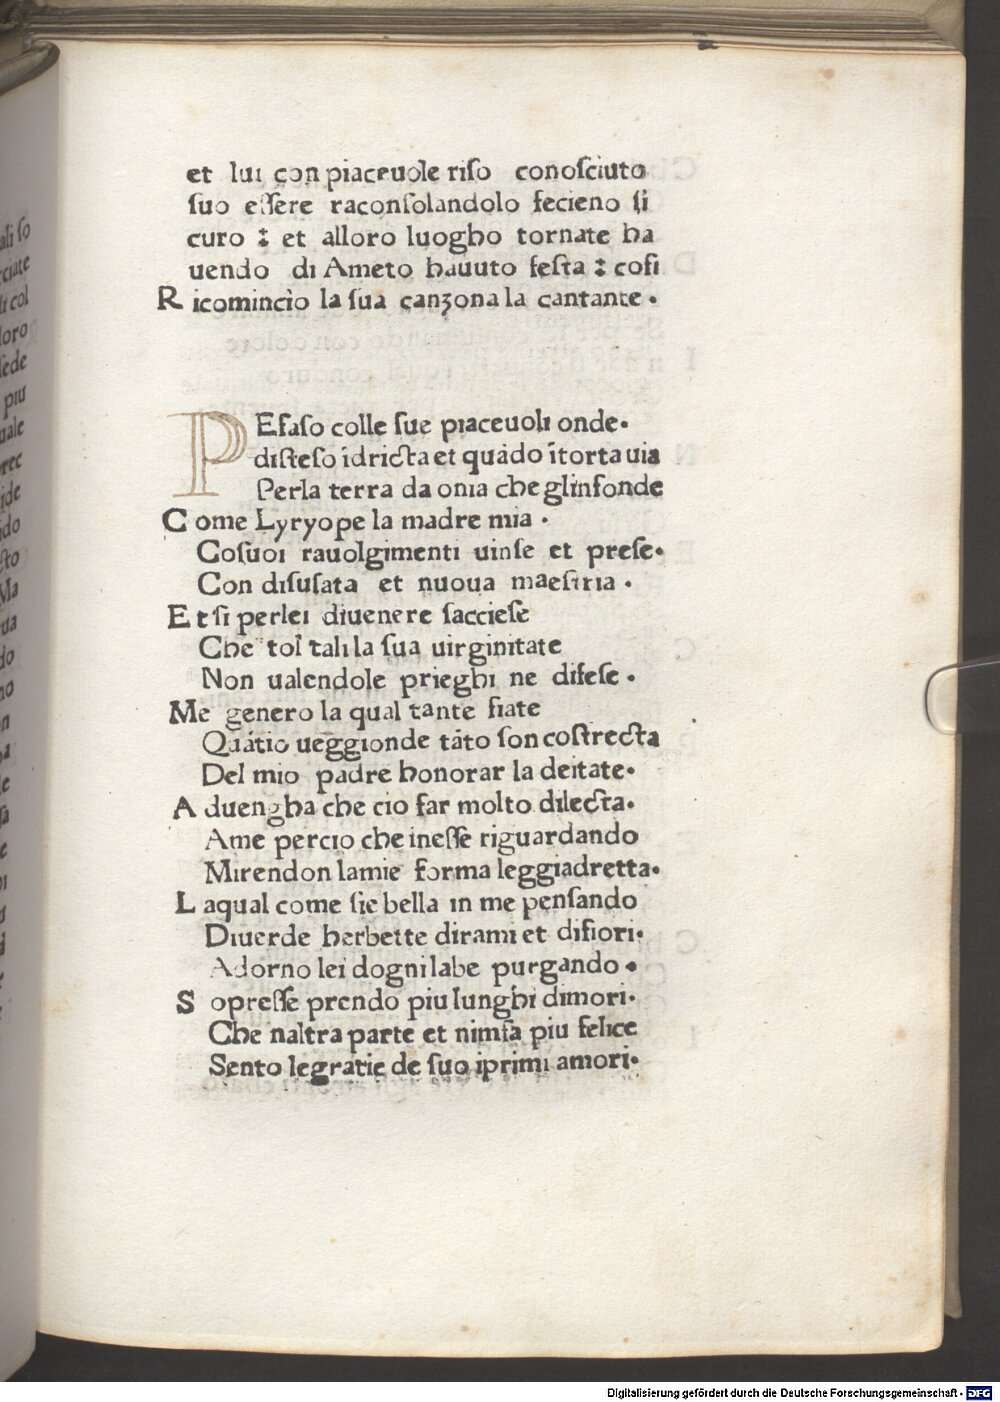 et lui con piaceuole riſo conoſciuto
ſuo eſſere raconſolandolo fecieno ſi
curo : et alloro luogho tornate ha
uendo di Ameto hauuto feſta : coſi
R icomincio la ſua canzona la cantante .
PEſaſo colle ſue piaceuoli onde.
diſteſo īdricta et quādo ītorta uia
Perla terra da onia che glinfonde
C ome Lyryope la madre mia .
Coſuoi rauolgimenti uinſe et preſe.
Con diſuſata et nuoua maeſtria .
E t ſi perlei diuenere ſaccieſe
Che tol tali la ſua uirginitate
Non ualendole prieghi ne difeſe .
M e genero la qual tante fiate
Quātio ueggionde tāto ſon coſtrecta
Del mio padre honorar la deitate.
A duengha che cio far molto dilecta.
Ame percio che ineſſe riguardando
Mirendon lamie forma leggiadretta.
L aqual come ſie bella in me penſando
Diuerde herbette dirami et difiori.
Adorno lei dogni labe purgando .
S opreſſe prendo piu lunghi dimori.
Che naltra parte et nimfa piu felice
Sento legratie de ſuo iprimi amori.
Digitalisierung gefördert durch die Deutsche Forschungsgemeinschaft - DFG